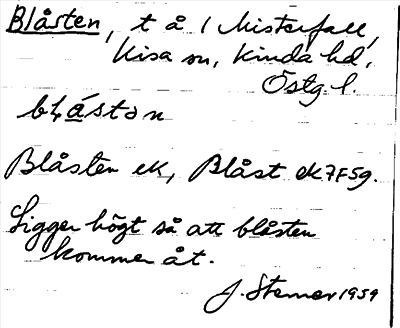 Blåsten, t å 1 Misterfall,
Kisa sn, Kinda hd,
Östg. l.
bḷåstən
Blåsten ek, Blåst ek 7F5g.
Ligger högt så att blåsten
kommer åt.
J. Sterner 1959